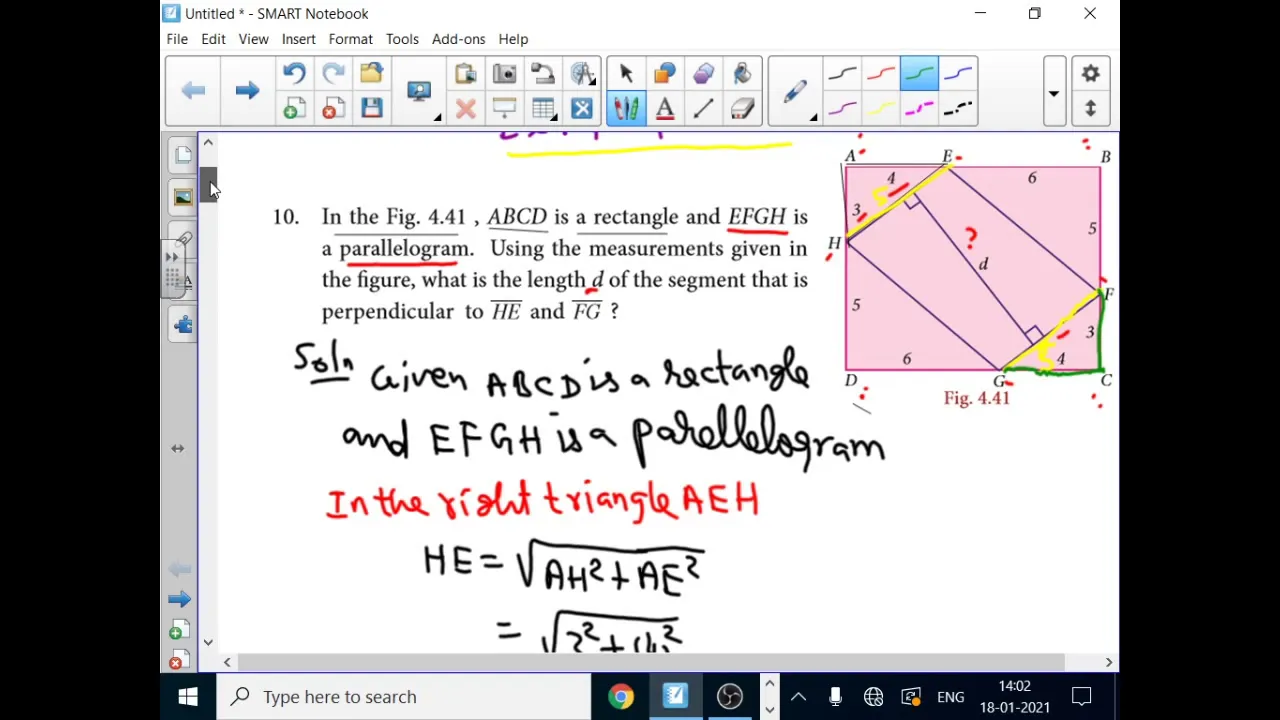 Untitled * - SMART Notebook
File Edit View Insert Format Tools Add-ons Help
10. In the Fig. 4.41 , ABCD is a rectangle and EFGH is
a parallelogram. Using the measurements given in
the figure, what is the length d of the segment that is
perpendicular to HE and FG ?
A E B
4 6
5
3 5
H ?
d
F
5 3
5
6 4
D G C
Fig. 4.41
Soln Given ABCD is a rectangle
and EFGH is a parellelogram
In the right triangle AEH
HE = √AH² + AE²
= √3² + 4²
Type here to search
ENG
14:02
18-01-2021